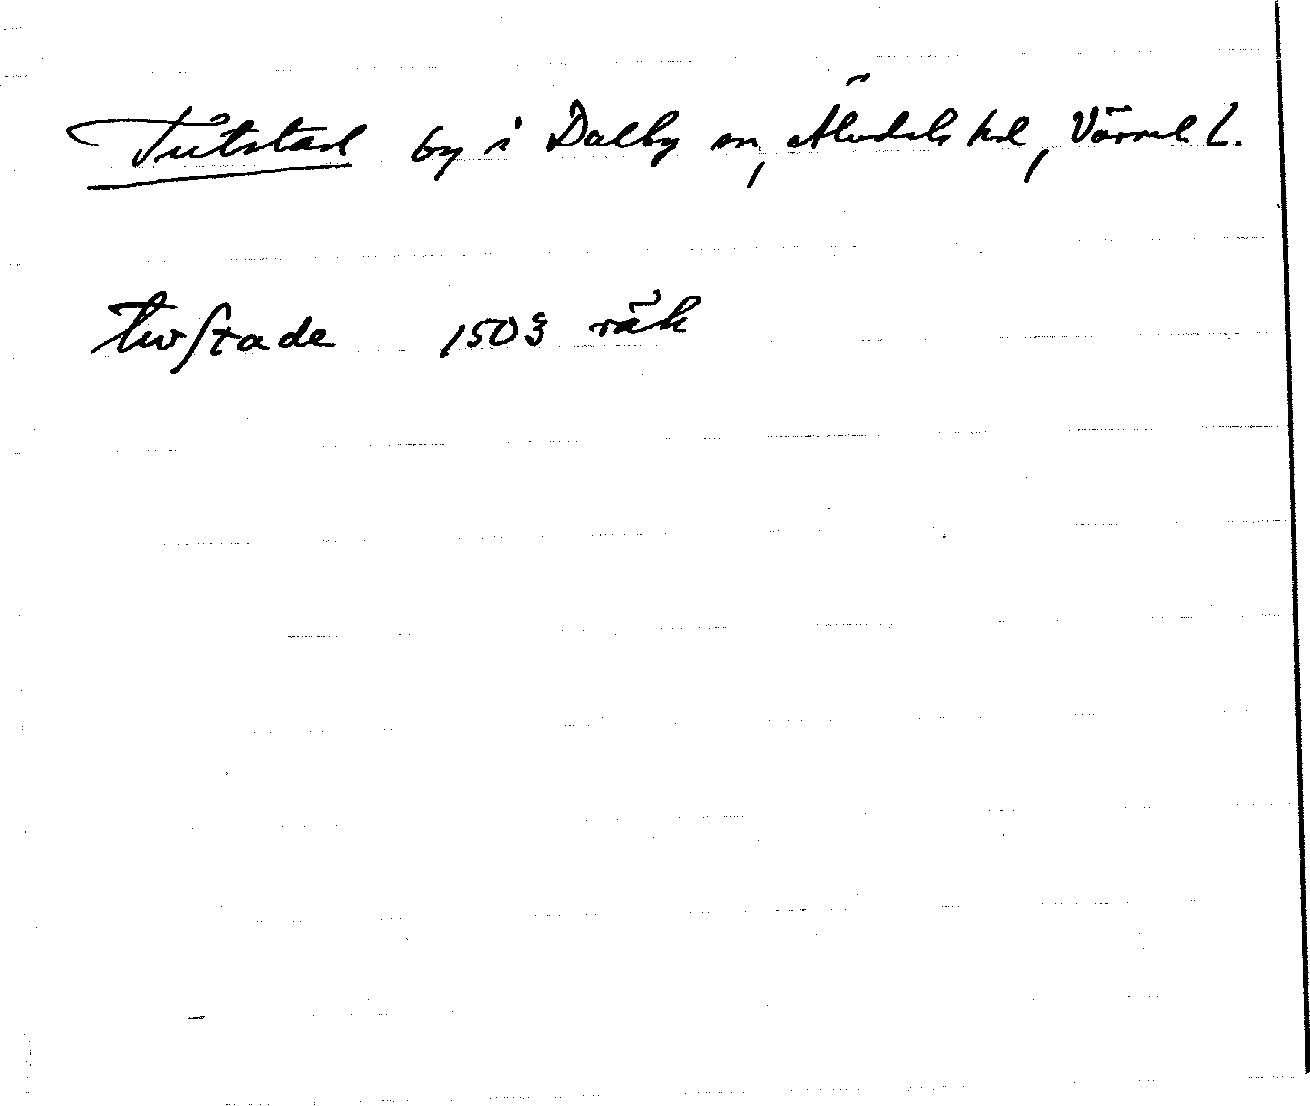 Tutstad by i Dalby sn, Älvdals hd, Värml l.
twstade 1503 räk